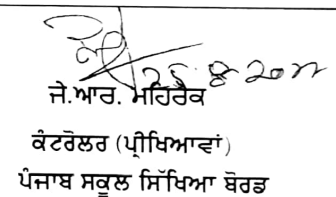 25 8 20
ਜੇ.ਆਰ. ਮਹਿਰੋਕ
ਕੰਟਰੋਲਰ (ਪ੍ਰੀਖਿਆਵਾਂ)
ਪੰਜਾਬ ਸਕੂਲ ਸਿੱਖਿਆ ਬੋਰਡ